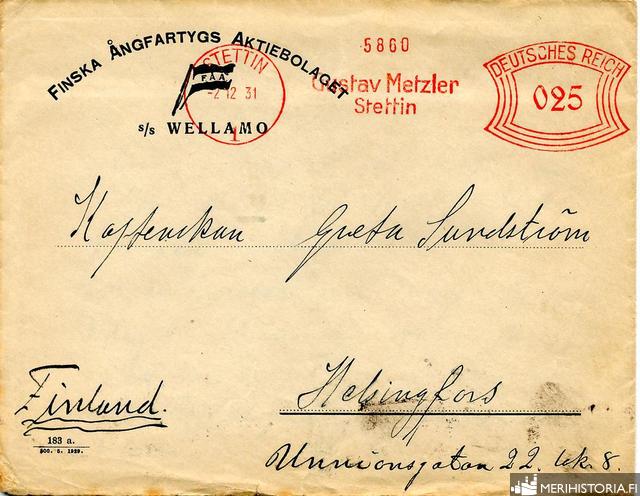 FINSKA ÅNGFARTYGS AKTIEBOLAGET
F.Å.A.
s/s WELLAMO
STETTIN
-2 12 31
1
5860
Gustav Metzler
Stettin
DEUTSCHES REICH
025
Kaptenskan Greta Sundström
Helsingfors
Unionsgatan 22. lok. 8.
Finland.
183 a.
500. 5. 1929.
MERIHISTORIA.FI